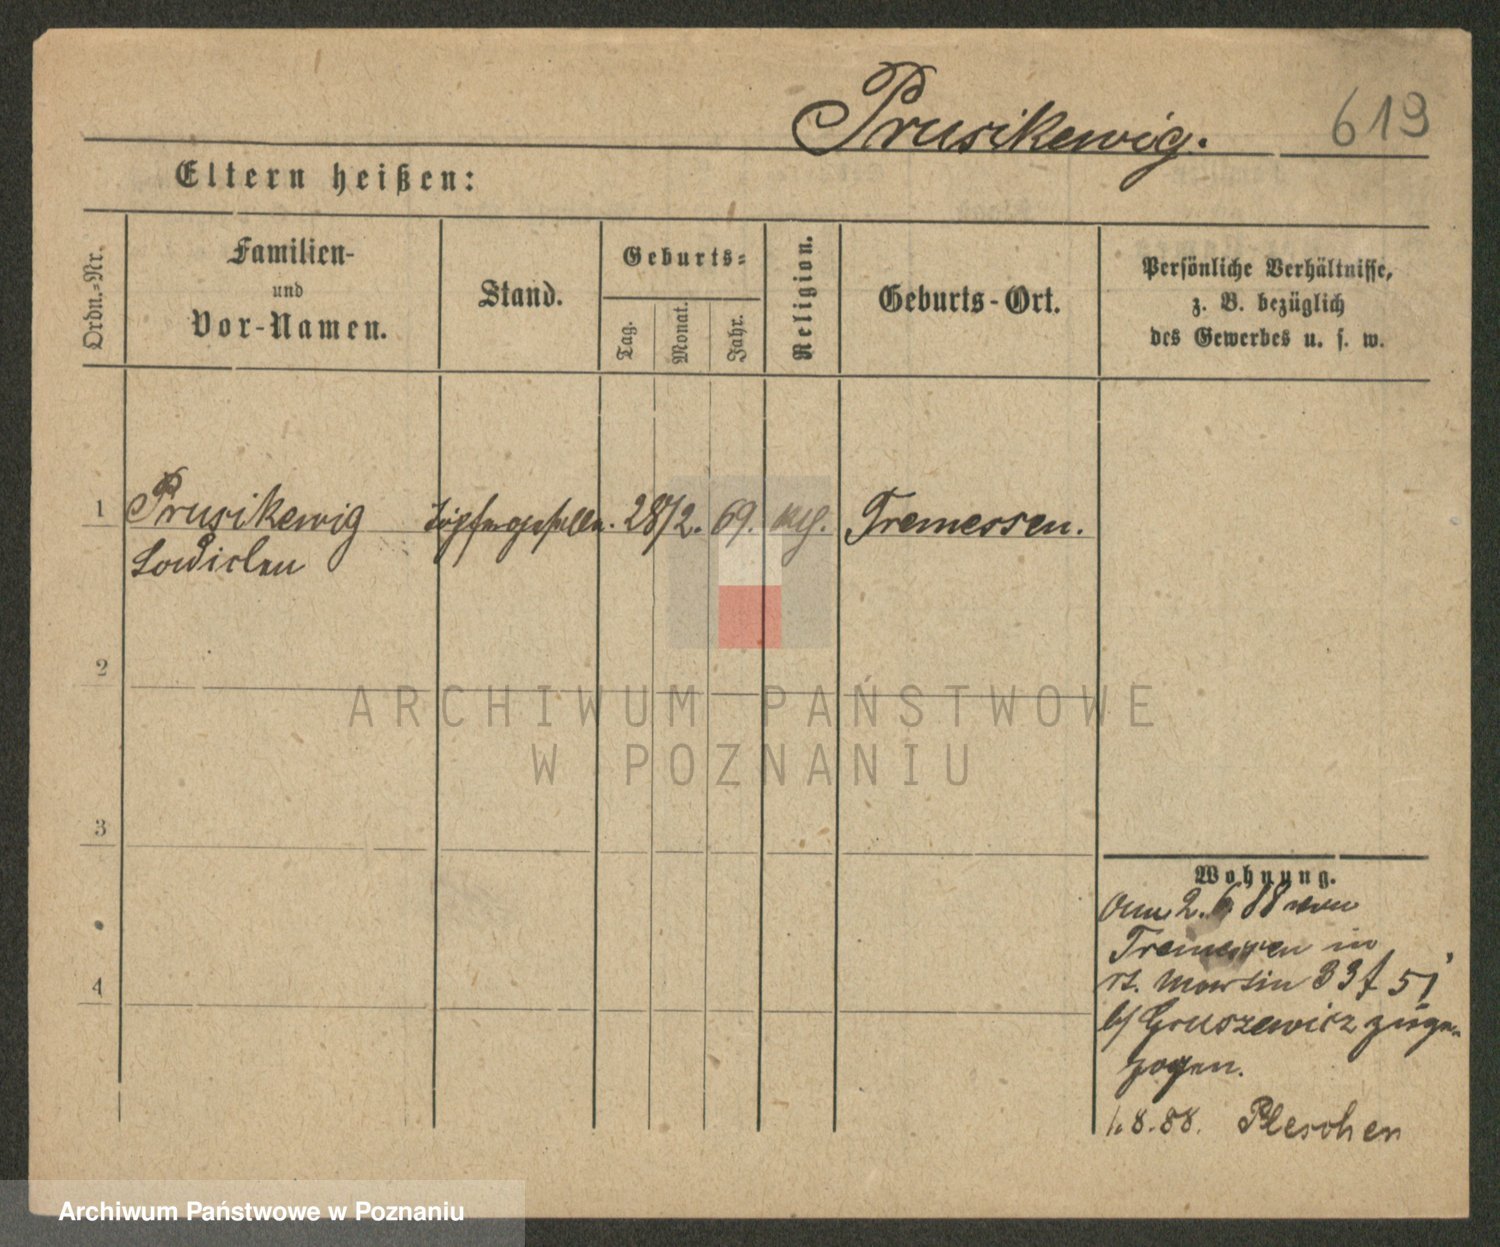 Prusikewig. 619
Eltern heißen:
Ordn.-Nr.
Familien-
und
Vor-Namen.
Stand.
Geburts-
Tag.
Monat.
Jahr.
Religion.
Geburts-Ort.
Persönliche Verhältnisse,
z. B. bezüglich
des Gewerbes u. s. w.
1 Prusikewig Töpfergeselle. 28/2. 69. Tremessen.
2
3
4
Wohnung.
2. 6. 88 von
Tremessen in
St. Martin 33
b/ Gruszewicz zuge-
zogen.
1. 8. 88. Pleschen
ARCHIWUM PAŃSTWOWE
W POZNANIU
Archiwum Państwowe w Poznaniu